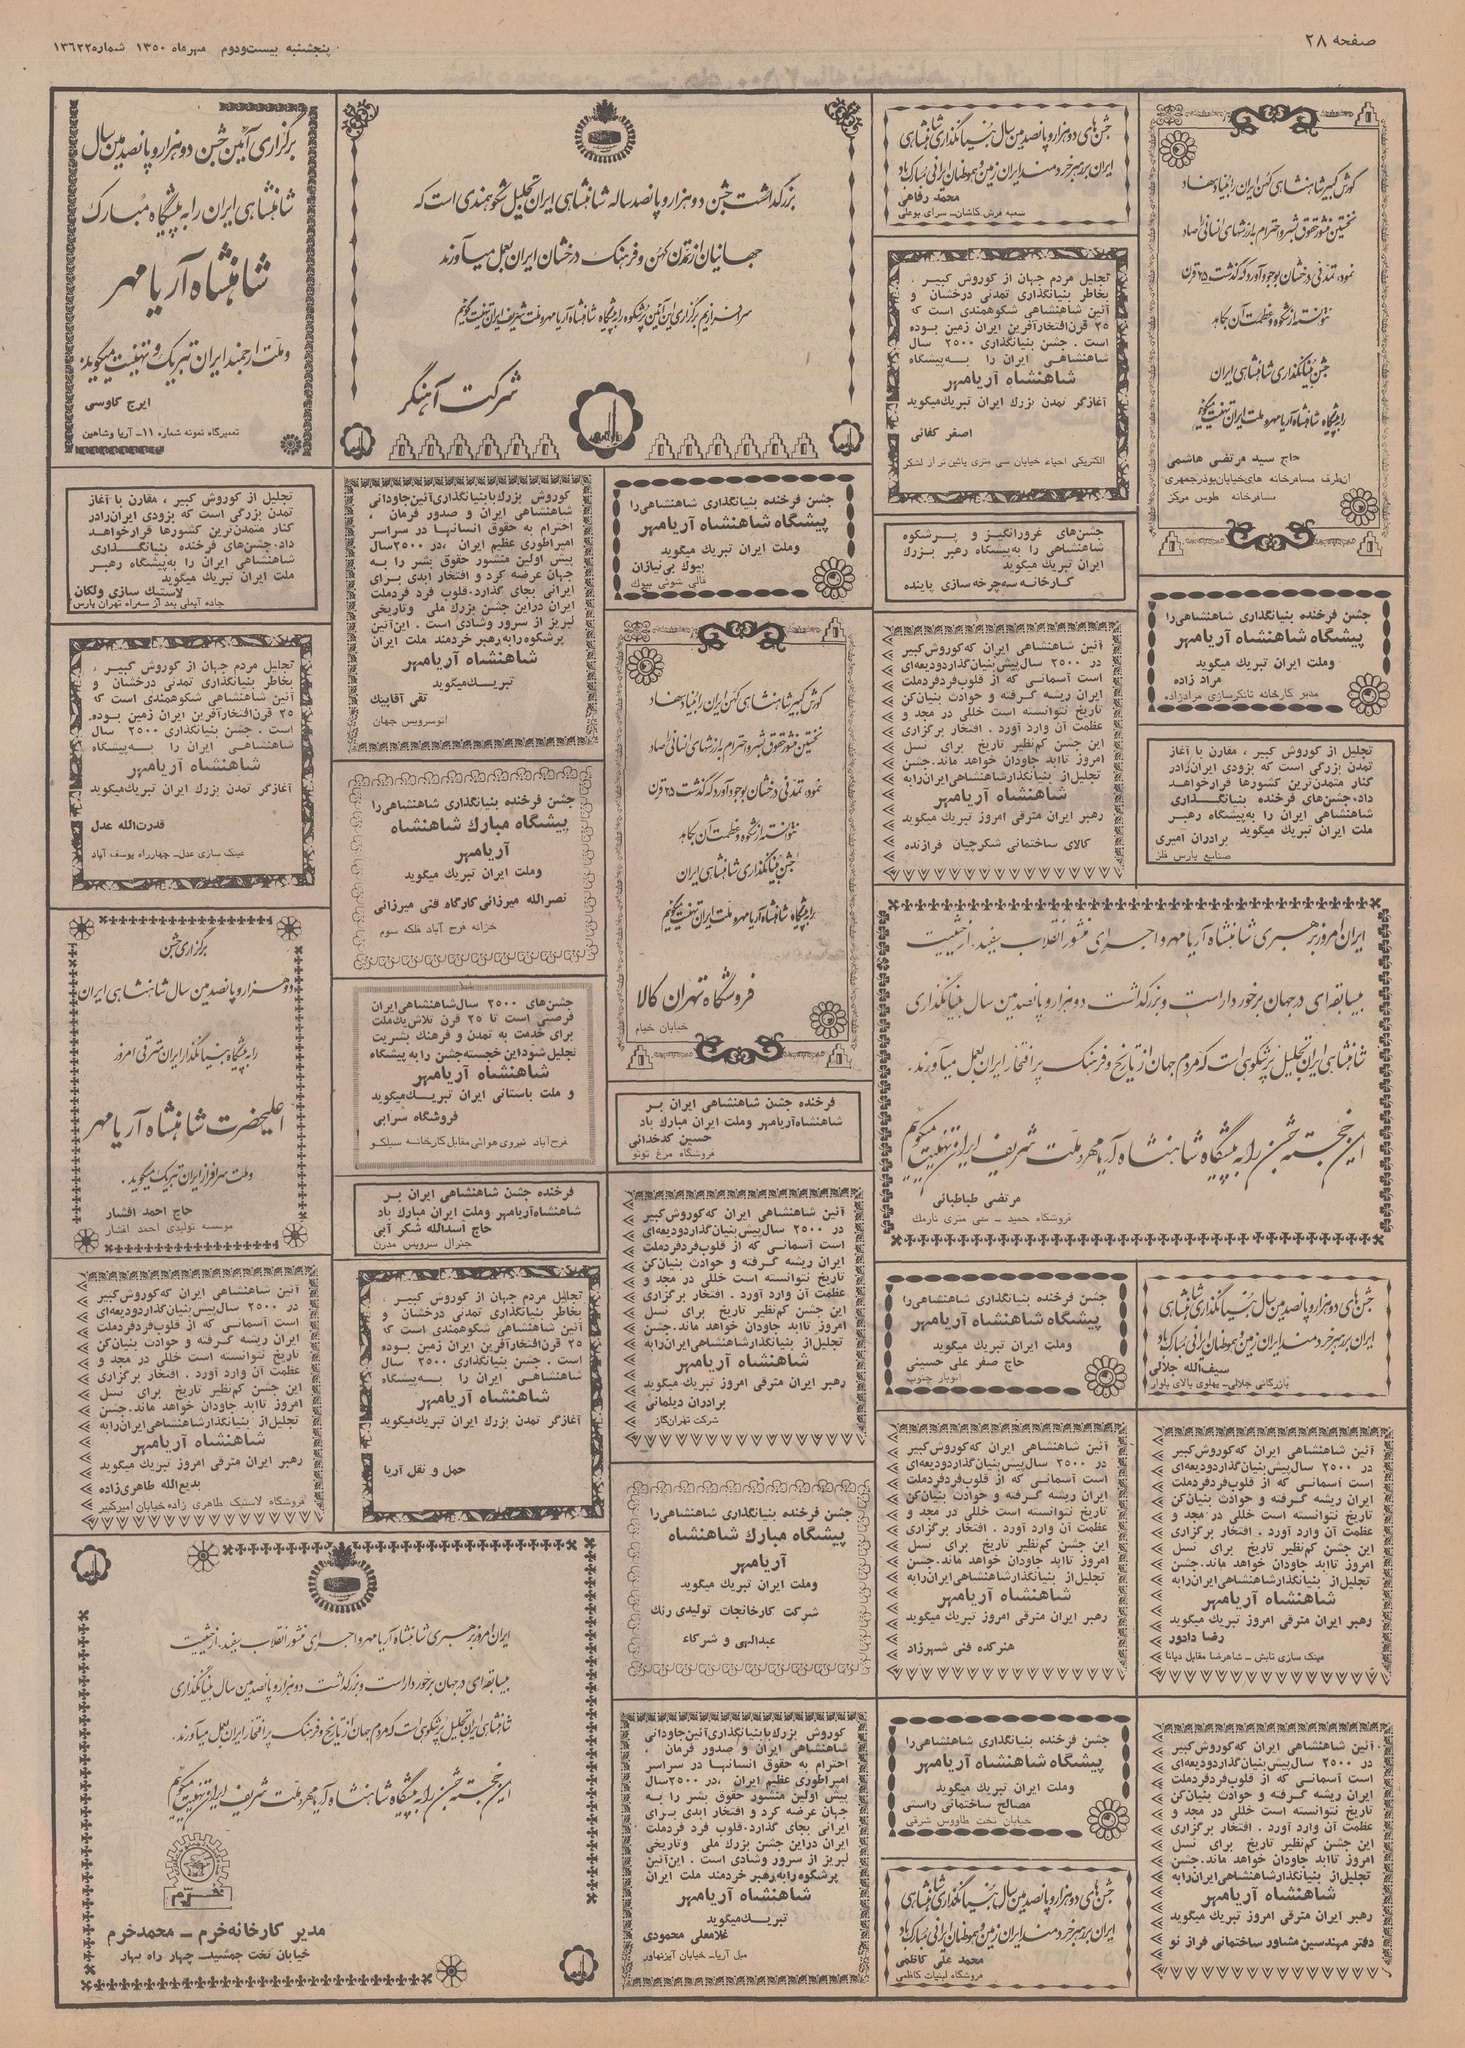 صفحه ۲۸
پنجشنبه بیست‌ودوم مهرماه ۱۳۵۰ شماره ۱۳۶۲۲
کورش کبیر شاهنشاهی کهن ایران را بنیاد نهاد
نخستین منشور حقوق بشر و احترام به ارزشهای انسانی را صادر
نمود، تمدنی درخشان بوجود آورد که گذشت ۲۵ قرن
نتوانسته از شکوه و عظمت آن بکاهد
جشن بنیانگذاری شاهنشاهی ایران
را به پیشگاه شاهنشاه آریامهر و ملت ایران تهنیت میگوئیم
حاج سید مرتضی هاشمی
ازطرف مسافرخانه های خیابان بوذرجمهری
مسافرخانه طوس مرکز
جشن های دو هزار و پانصدمین سال بنیانگذاری شاهنشاهی
ایران بر رهبر خردمند ایران زمین و هموطنان ایرانی مبارک باد
محمد رفاهی
شعبه فرش کاشان - سرای بوعلی
بزرگداشت جشن دو هزار و پانصد ساله شاهنشاهی ایران تجلیل شکوهمندی است که
جهانیان از تمدن کهن و فرهنگ درخشان ایران بعمل میآورند
سرافرازیم برگزاری این آئین پرشکوه را به پیشگاه شاهنشاه آریامهر و ملت شریف ایران تهنیت گوئیم
شرکت آهنگر
برگزاری آئین جشن دو هزار و پانصدمین سال
شاهنشاهی ایران را به پیشگاه مبارک
شاهنشاه آریامهر
و ملت ارجمند ایران تبریک و تهنیت میگوید.
ایرج کاوسی
تعمیرگاه نمونه شماره ۱۱ - آریا وشاهین
تجلیل مردم جهان از کوروش کبیر ،
بخاطر بنیانگذاری تمدنی درخشان و
آئین شاهنشاهی شکوهمندی است که
۲۵ قرن افتخارآفرین ایران زمین بوده
است . جشن بنیانگذاری ۲۵۰۰ سال
شاهنشاهی ایران را به‌پیشگاه
شاهنشاه آریامهر
آغازگر تمدن بزرگ ایران تبریک میگوید
اصغر کفائی
الکتریکی احیاء خیابان سی متری پائین تر از لشکر
جشن‌های غرورانگیز و پرشکوه
شاهنشاهی را به‌پیشگاه رهبر بزرگ
ایران تبریک میگوید
کارخانه سه‌چرخه سازی پاینده
جشن فرخنده بنیانگذاری شاهنشاهی‌را
پیشگاه شاهنشاه آریامهر
وملت ایران تبریک میگوید
بیوک بی‌نیازان
قالی شوئی بیوک
کوروش بزرگ بابنیانگذاری آئین جاودانی
شاهنشاهی ایران و صدور فرمان ،
احترام به حقوق انسانها در سراسر
امپراطوری عظیم ایران ،در ۲۵۰۰سال
پیش اولین منشور حقوق بشر را به
جهان عرضه کرد و افتخار ابدی برای
ایرانی بجای گذارد.قلوب فرد فردملت
ایران دراین جشن بزرگ ملی وتاریخی
لبریز از سرور وشادی است . این آئین
پرشکوه رابه رهبر خردمند ملت ایران
شاهنشاه آریامهر
تبریک میگوید
تقی آقابیک
اتوسرویس جهان
تجلیل از کوروش کبیر ، مقارن با آغاز
تمدن بزرگی است که بزودی ایران‌رادر
کنار متمدن‌ترین کشورها قرارخواهد
داد.جشن‌های فرخنده بنیانگذاری
شاهنشاهی ایران را به‌پیشگاه رهبر
ملت ایران تبریک میگوید
لاستیک سازی ولکان
جاده آبعلی بعد از سه‌راه تهران پارس
جشن فرخنده بنیانگذاری شاهنشاهی‌را
پیشگاه شاهنشاه آریامهر
وملت ایران تبریک میگوید
مراد زاده
مدیر کارخانه تانکرسازی مرادزاده
تجلیل از کوروش کبیر ، مقارن با آغاز
تمدن بزرگی است که بزودی ایران‌رادر
کنار متمدن‌ترین کشورها قرارخواهد
داد.جشن‌های فرخنده بنیانگذاری
شاهنشاهی ایران را به‌پیشگاه رهبر
ملت ایران تبریک میگوید
برادران امیری
صنایع پارس فلز
آئین شاهنشاهی ایران که‌کوروش‌کبیر
در ۲۵۰۰ سال‌پیش‌بنیان‌گذاردودیعه‌ای
است آسمانی که از قلوب‌فردفردملت
ایران ریشه گرفته و حوادث بنیان‌کن
تاریخ نتوانسته است خللی در مجد و
عظمت آن وارد آورد . افتخار برگزاری
این جشن کم‌نظیر تاریخ برای نسل
امروز تاابد جاودان خواهد ماند.جشن
تجلیل‌از بنیانگذارشاهنشاهی‌ایران‌رابه
شاهنشاه آریامهر
رهبر ایران مترقی امروز تبریک میگوید
کالای ساختمانی شکرچیان فرازنده
کورش کبیر شاهنشاهی کهن ایران را بنیاد نهاد
نخستین منشور حقوق بشر و احترام به ارزشهای انسانی را صادر
نمود، تمدنی درخشان بوجود آورد که گذشت ۲۵ قرن
نتوانسته از شکوه و عظمت آن بکاهد
جشن بنیانگذاری شاهنشاهی ایران
را به پیشگاه شاهنشاه آریامهر و ملت ایران تهنیت میگوئیم
فروشگاه تهران کالا
خیابان خیام
جشن فرخنده بنیانگذاری شاهنشاهی را
پیشگاه مبارک شاهنشاه
آریامهر
وملت ایران تبریک میگوید
نصرالله میرزائی کارگاه فنی میرزائی
خزانه فرح آباد فلکه سوم
تجلیل مردم جهان از کوروش کبیر ،
بخاطر بنیانگذاری تمدنی درخشان و
آئین شاهنشاهی شکوهمندی است که
۲۵ قرن‌افتخارآفرین ایران زمین بوده
است . جشن بنیانگذاری ۲۵۰۰ سال
شاهنشاهی ایران را به‌پیشگاه
شاهنشاه آریامهر
آغازگر تمدن بزرگ ایران تبریک‌میگوید
قدرت‌الله عدل
عینک سازی عدل- چهارراه یوسف آباد
ایران امروز برهبری شاهنشاه آریامهر و اجرای منشور انقلاب سفید، از حیثیت
بیسابقه‌ای در جهان برخوردار است و بزرگداشت دو هزار و پانصدمین سال بنیانگذاری
شاهنشاهی ایران تجلیل پرشکوهی است که مردم جهان از تاریخ و فرهنگ پر افتخار ایران بعمل میآورند.
این خجسته جشن را به پیشگاه شاهنشاه آریامهر و ملت شریف ایران تهنیت میگوئیم
مرتضی طباطبائی
فروشگاه حمید - سی متری نارمک
جشن‌های ۲۵۰۰ سال‌شاهنشاهی‌ایران
فرصتی است تا ۲۵ قرن تلاش‌یک‌ملت
برای خدمت به تمدن و فرهنگ بشریت
تجلیل شود؛این خجسته‌جشن رابه پیشگاه
شاهنشاه آریامهر
و ملت باستانی ایران تبریک‌میگوید
فروشگاه سرابی
فرح‌آباد نیروی هوائی مقابل کارخانه سیلکو
برگزاری جشن
دو هزار و پانصدمین سال شاهنشاهی ایران
را به پیشگاه بنیانگذار ایران مترقی امروز
اعلیحضرت شاهنشاه آریامهر
و ملت سرافراز ایران تبریک میگوید.
حاج احمد افشار
موسسه تولیدی احمد افشار
فرخنده جشن شاهنشاهی ایران بر
شاهنشاه‌آریامهر وملت ایران مبارک باد
حسین کدخدائی
فروشگاه مرغ توتو
فرخنده جشن شاهنشاهی ایران بر
شاهنشاه‌آریامهر وملت ایران مبارک باد
حاج اسدالله شکر آبی
جنرال سرویس مدرن
آئین شاهنشاهی ایران که‌کوروش‌کبیر
در ۲۵۰۰ سال‌پیش‌بنیان‌گذاردودیعه‌ای
است آسمانی که از قلوب‌فردفردملت
ایران ریشه گرفته و حوادث بنیان‌کن
تاریخ نتوانسته است خللی در مجد و
عظمت آن وارد آورد . افتخار برگزاری
این جشن کم‌نظیر تاریخ برای نسل
امروز تاابد جاودان خواهد ماند.جشن
تجلیل‌از بنیانگذارشاهنشاهی‌ایران‌رابه
شاهنشاه آریامهر
رهبر ایران مترقی امروز تبریک میگوید
برادران دیلمانی
شرکت تهران‌گاز
جشن های دو هزار و پانصدمین سال بنیانگذاری شاهنشاهی
ایران بر رهبر خردمند ایران زمین و هموطنان ایرانی مبارک باد
سیف‌الله جلالی
بازرگانی جلالی- پهلوی بالای بلوار
جشن فرخنده بنیانگذاری شاهنشاهی‌را
پیشگاه شاهنشاه آریامهر
وملت ایران تبریک میگوید
حاج صفر علی حسینی
انوبار جنوب
تجلیل مردم جهان از کوروش کبیر ،
بخاطر بنیانگذاری تمدنی درخشان و
آئین شاهنشاهی شکوهمندی است که
۲۵ قرن‌افتخارآفرین ایران زمین بوده
است . جشن بنیانگذاری ۲۵۰۰ سال
شاهنشاهی ایران را به‌پیشگاه
شاهنشاه آریامهر
آغازگر تمدن بزرگ ایران تبریک‌میگوید
حمل و نقل آریا
آئین شاهنشاهی ایران که‌کوروش‌کبیر
در ۲۵۰۰ سال‌پیش‌بنیان‌گذاردودیعه‌ای
است آسمانی که از قلوب‌فردفردملت
ایران ریشه گرفته و حوادث بنیان‌کن
تاریخ نتوانسته است خللی در مجد و
عظمت آن وارد آورد . افتخار برگزاری
این جشن کم‌نظیر تاریخ برای نسل
امروز تاابد جاودان خواهد ماند.جشن
تجلیل‌از بنیانگذارشاهنشاهی‌ایران‌رابه
شاهنشاه آریامهر
رهبر ایران مترقی امروز تبریک میگوید
بدیع‌الله طاهری‌زاده
فروشگاه لاستیک طاهری زاده خیابان امیرکبیر
آئین شاهنشاهی ایران که‌کوروش‌کبیر
در ۲۵۰۰ سال‌پیش‌بنیان‌گذاردودیعه‌ای
است آسمانی که از قلوب‌فردفردملت
ایران ریشه گرفته و حوادث بنیان‌کن
تاریخ نتوانسته است خللی در مجد و
عظمت آن وارد آورد . افتخار برگزاری
این جشن کم‌نظیر تاریخ برای نسل
امروز تاابد جاودان خواهد ماند.جشن
تجلیل‌از بنیانگذارشاهنشاهی‌ایران‌رابه
شاهنشاه آریامهر
رهبر ایران مترقی امروز تبریک میگوید
رضا دادور
عینک سازی تابش - شاهرضا مقابل دیانا
آئین شاهنشاهی ایران که‌کوروش‌کبیر
در ۲۵۰۰ سال‌پیش‌بنیان‌گذاردودیعه‌ای
است آسمانی که از قلوب‌فردفردملت
ایران ریشه گرفته و حوادث بنیان‌کن
تاریخ نتوانسته است خللی در مجد و
عظمت آن وارد آورد . افتخار برگزاری
این جشن کم‌نظیر تاریخ برای نسل
امروز تاابد جاودان خواهد ماند.جشن
تجلیل‌از بنیانگذارشاهنشاهی‌ایران‌رابه
شاهنشاه آریامهر
رهبر ایران مترقی امروز تبریک میگوید
هنرکده فنی شهرزاد
جشن فرخنده بنیانگذاری شاهنشاهی‌را
پیشگاه مبارک شاهنشاه
آریامهر
وملت ایران تبریک میگوید
شرکت کارخانجات تولیدی رنگ
عبدالهی و شرکاء
ایران امروز برهبری شاهنشاه آریامهر و اجرای منشور انقلاب سفید، از حیثیت
بیسابقه‌ای در جهان برخوردار است و بزرگداشت دو هزار و پانصدمین سال بنیانگذاری
شاهنشاهی ایران تجلیل پرشکوهی است که مردم جهان از تاریخ و فرهنگ پر افتخار ایران بعمل میآورند.
این خجسته جشن را به پیشگاه شاهنشاه آریامهر و ملت شریف ایران تهنیت میگوئیم
خرم
مدیر کارخانه خرم - محمدخرم
خیابان تخت جمشید- چهار راه بهار
آئین شاهنشاهی ایران که‌کوروش‌کبیر
در ۲۵۰۰ سال‌پیش‌بنیان‌گذاردودیعه‌ای
است آسمانی که از قلوب‌فردفردملت
ایران ریشه گرفته و حوادث بنیان‌کن
تاریخ نتوانسته است خللی در مجد و
عظمت آن وارد آورد . افتخار برگزاری
این جشن کم‌نظیر تاریخ برای نسل
امروز تاابد جاودان خواهد ماند.جشن
تجلیل‌از بنیانگذارشاهنشاهی‌ایران‌رابه
شاهنشاه آریامهر
رهبر ایران مترقی امروز تبریک میگوید
دفتر مهندسین مشاور ساختمانی فراز نو
جشن فرخنده بنیانگذاری شاهنشاهی‌را
پیشگاه شاهنشاه آریامهر
وملت ایران تبریک میگوید
مصالح ساختمانی راستی
خیابان تخت طاووس شرقی
جشن های دو هزار و پانصدمین سال بنیانگذاری شاهنشاهی
ایران بر رهبر خردمند ایران زمین و هموطنان ایرانی مبارک باد
محمد علی کاظمی
فروشگاه لبنیات کاظمی
کوروش بزرگ بابنیانگذاری آئین جاودانی
شاهنشاهی ایران و صدور فرمان ،
احترام به حقوق انسانها در سراسر
امپراطوری عظیم ایران ،در ۲۵۰۰سال
پیش اولین منشور حقوق بشر را به
جهان عرضه کرد و افتخار ابدی برای
ایرانی بجای گذارد.قلوب فرد فردملت
ایران دراین جشن بزرگ ملی وتاریخی
لبریز از سرور وشادی است . این‌آئین
پرشکوه رابه رهبر خردمند ملت ایران
شاهنشاه آریامهر
تبریک‌میگوید
غلامعلی محمودی
مبل آریا- خیابان آیزنهاور